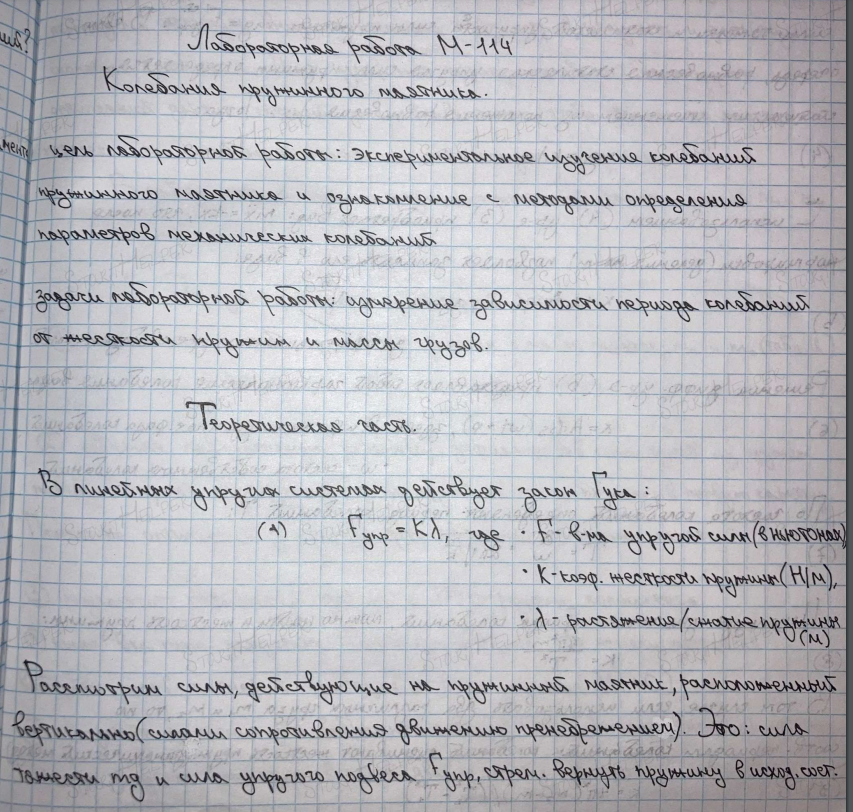 ий?
Лабораторная работа М-114
Колебания пружинного маятника.
мент
цель лабораторной работы: экспериментальное изучение колебаний
пружинного маятника и ознакомление с методами определения
параметров механических колебаний
задачи лабораторной работы: измерение зависимости периода колебаний
от жесткости пружин и массы грузов.
Теоретическая часть.
В линейных упругих системах действует закон Гука:
(1) Fупр = Kλ, где · F - в-на упругой силы (в ньютонах)
· K - коэф. жесткости пружины (Н/м),
· λ - растяжение/сжатие пружины
(м)
Рассмотрим силы, действующие на пружинный маятник, расположенный
вертикально (силами сопротивления движению пренебрежением). Это: сила
тяжести mg и сила упругого подвеса Fупр, стрем. вернуть пружину в исход. сост.